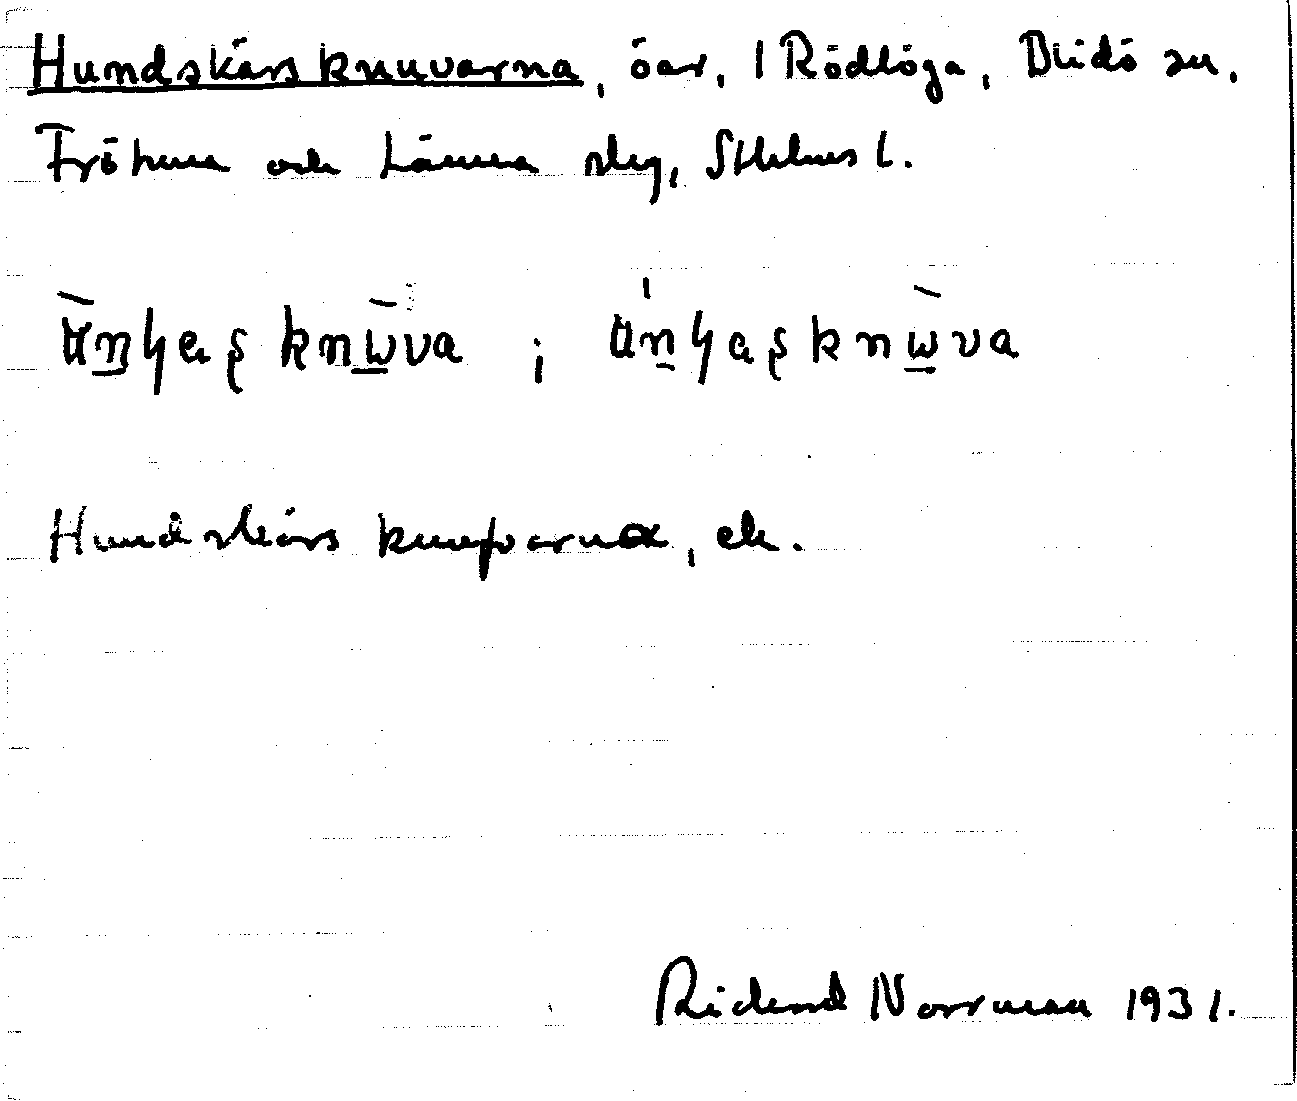 Hundskärsknuvarna, öar, 1 Rödlöga, Blidö sn,
Frötuna och Länna slg, Sthlms l.
knɯva ; knɯva
Hundskärs knufvarna, ek.
Rickard Norrman 1931.